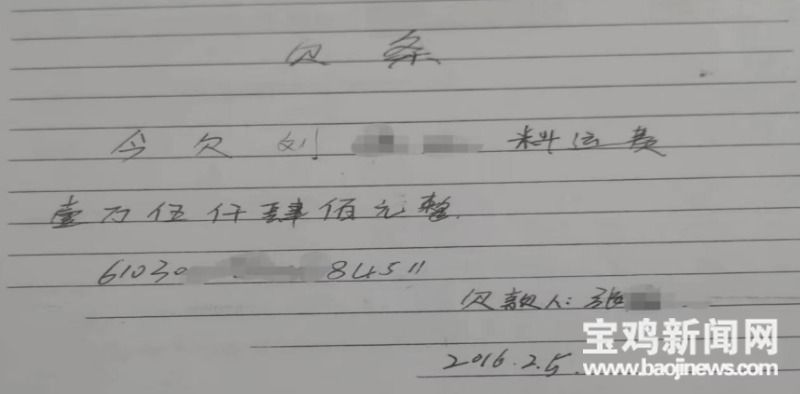 欠条
今欠刘 料运费
壹万伍仟肆佰元整.
61030 84511
欠款人: 张
2016.2.5.
宝鸡新闻网
www.baojinews.com